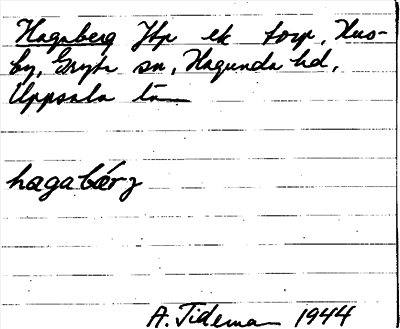 Hagaberg Jbp ek torp, Hus-
by, Gryta sn, Hagunda hd,
Uppsala län
hagabærj
A. Tideman 1944